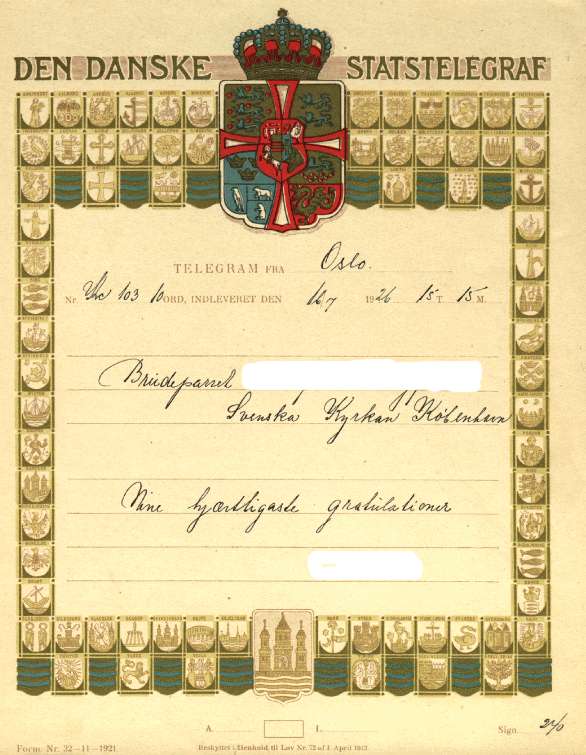 DEN DANSKE STATSTELEGRAF
TELEGRAM FRA Oslo.
Nr. 103 10 ORD, INDLEVERET DEN 16/7 1926 15 T. 15 M.
Brudeparret
Svenska Kyrkan København
Mine hjærtligaste gratulationer
A. I. Sign.
Form. Nr. 32-11-1921. Beskyttet i Henhold til Lov Nr. 72 af 1. April 1912.